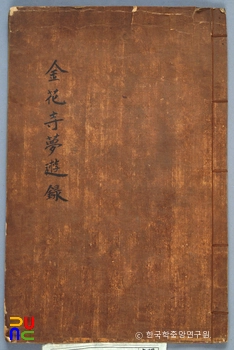 金花寺夢遊錄
© 한국학중앙연구원